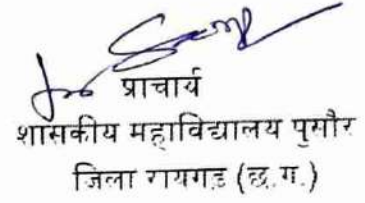 प्राचार्य
शासकीय महाविद्यालय पुसौर
जिला रायगड़ (छ.ग.)